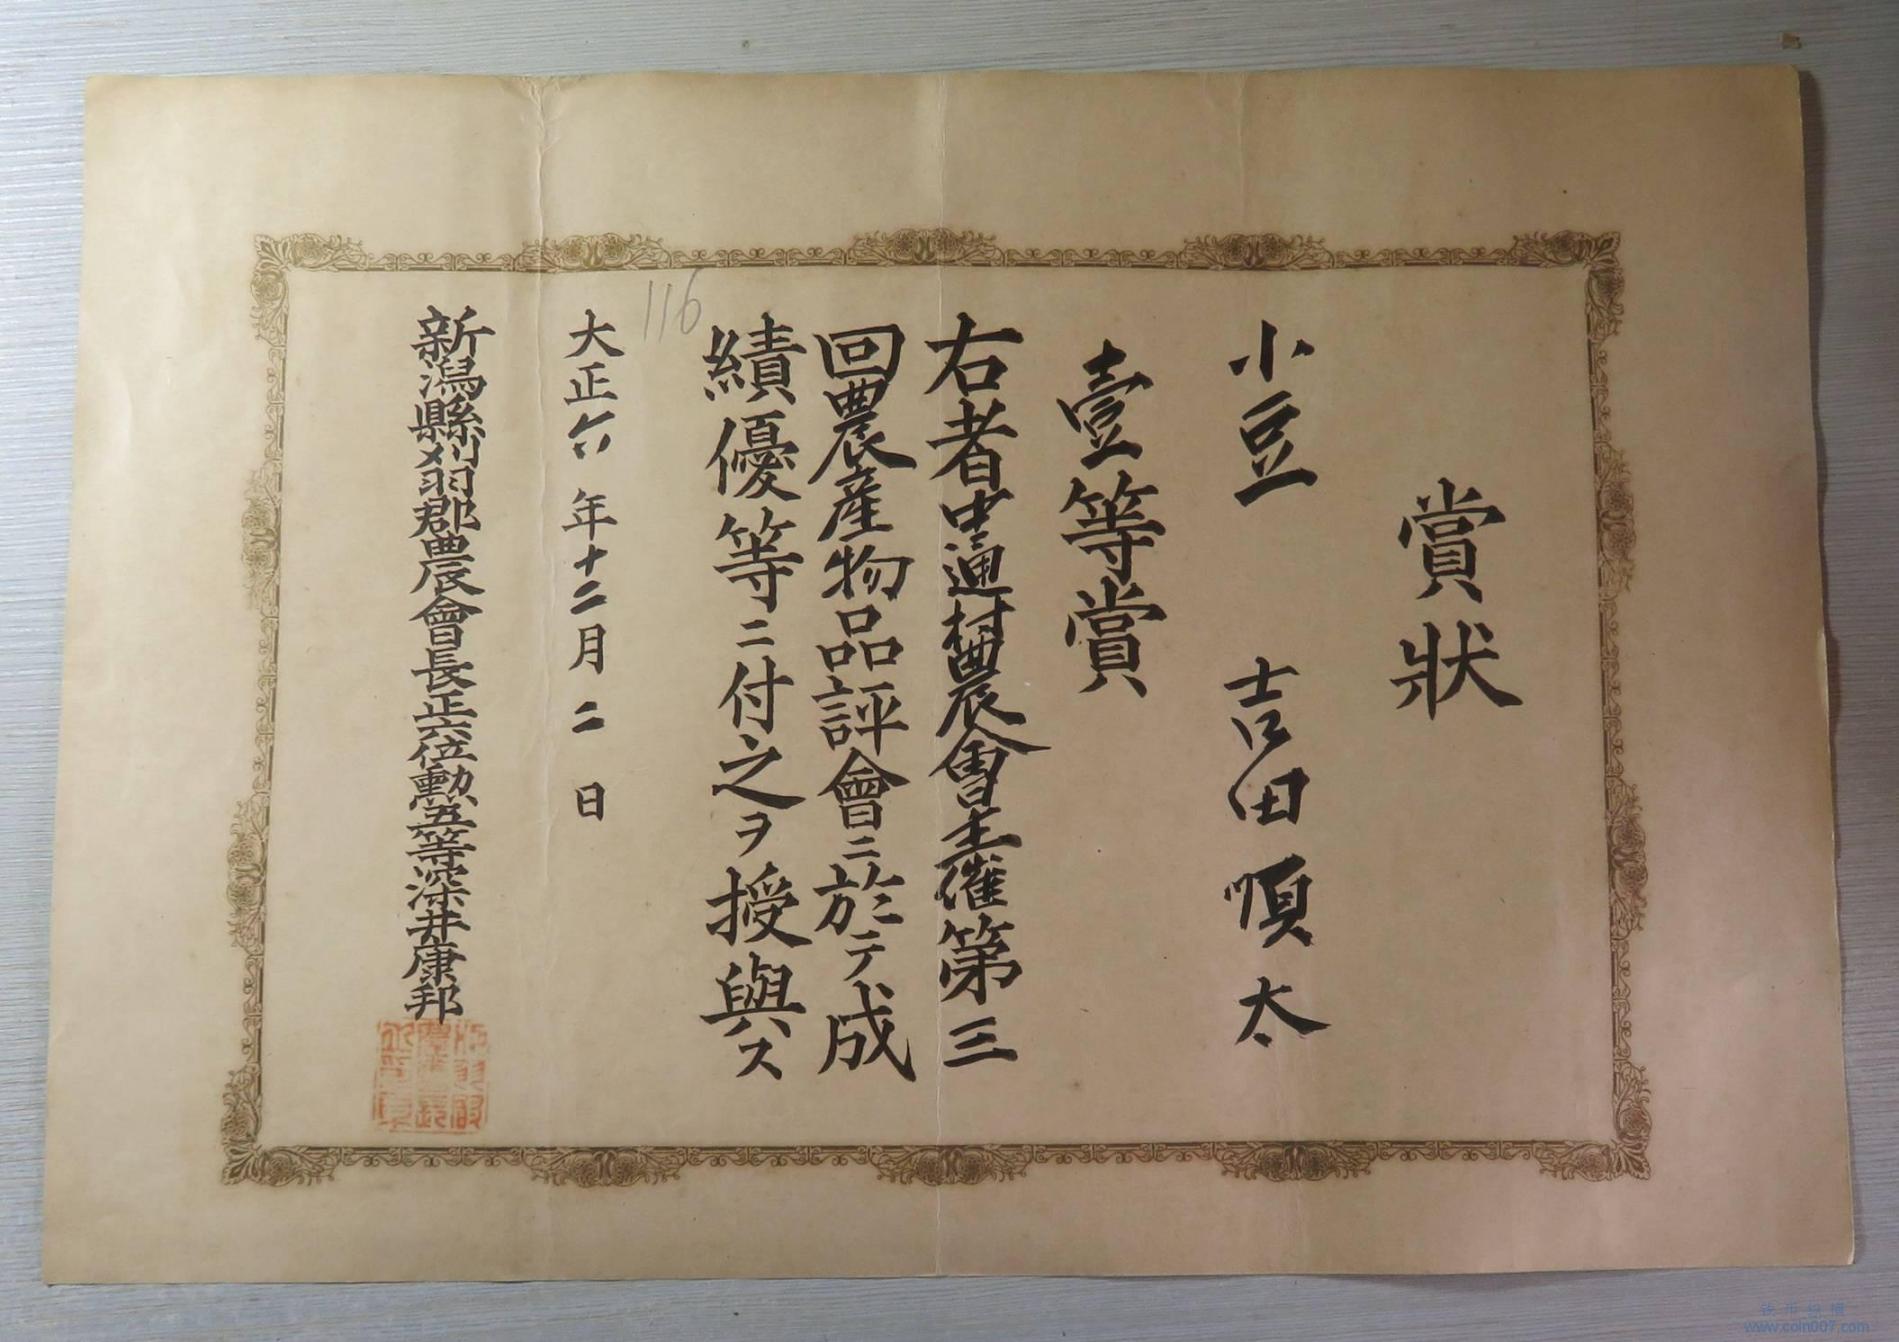 賞狀
小豆 吉田順太
壹等賞
右者中通村農會主催第三
回農産物品評會ニ於テ成
績優等ニ付之ヲ授與ス
116
大正六年十二月二日
新潟縣刈羽郡農會長正六位勲五等深井康邦
www.coin007.com